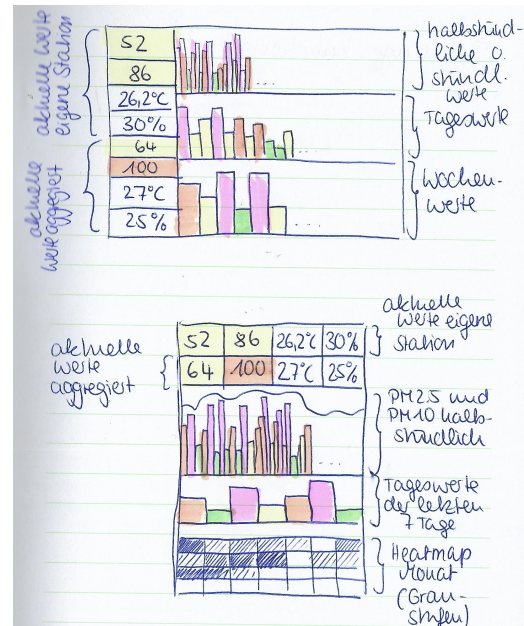 aktuelle Werte
eigene Station
aktuelle
Werte aggregiert
52
86
26,2°C
30%
64
100
27°C
25%
....
....
....
halbstünd-
liche o.
stündl.
Werte
Tageswerte
Wochen-
werte
aktuelle
Werte
aggregiert
52 86 26,2°C 30%
64 100 27°C 25%
....
aktuelle
Werte eigene
Station
PM2.5 und
PM10 halb-
stündlich
Tageswerte
der letzten
7 Tage
Heatmap
Monat
(Grau-
stufen)